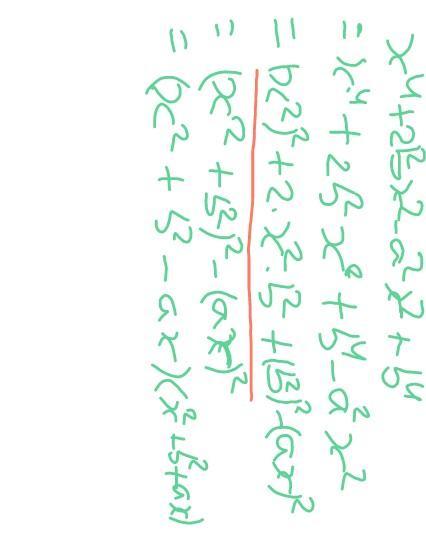 x⁴+2b²x²-a²x²+b⁴
= x⁴+2b²x²+b⁴-a²x²
= (x²)²+2·x²·b²+(b²)²-(ax)²
= (x²+b²)²-(ax)²
= (x²+b²-ax)(x²+b²+ax)